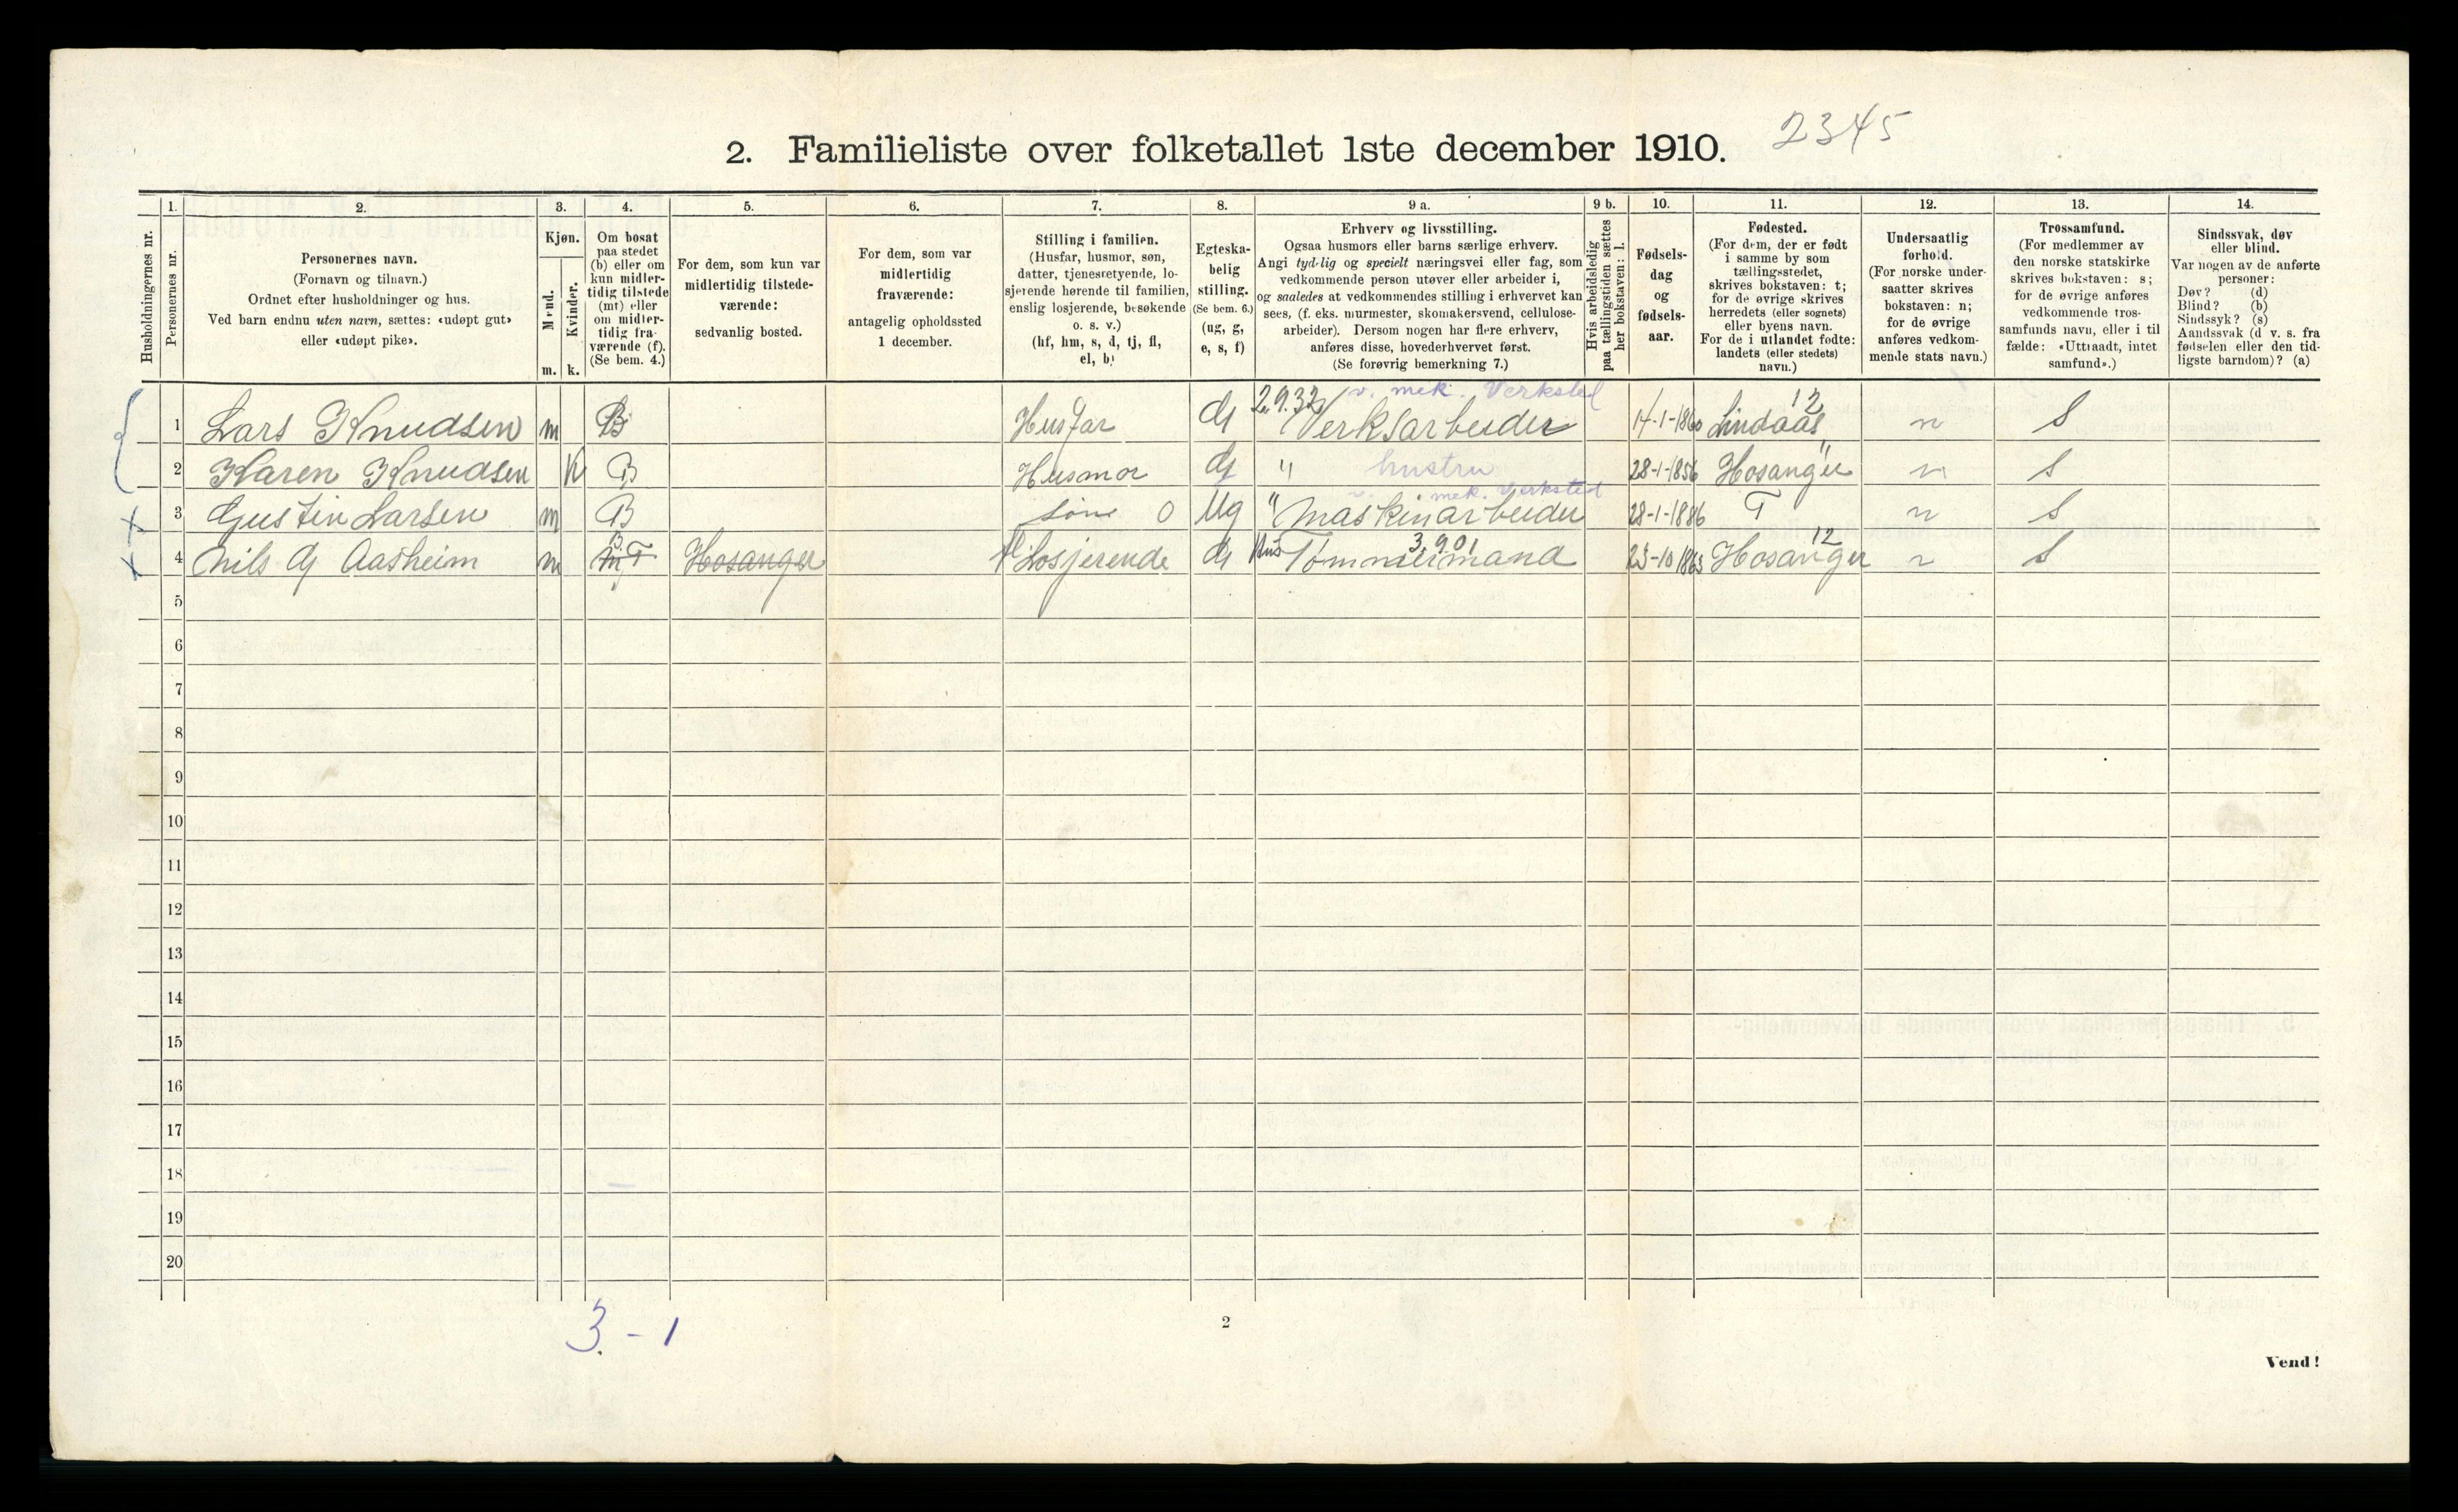 2. Familieliste over folketallet 1ste december 1910. 2345
1. 2. 3. 4. 5. 6. 7. 8. 9 a. 9 b. 10. 11. 12. 13. 14.
Husholdningernes nr.
Personernes nr.
Personernes navn.
(Fornavn og tilnavn.)
Ordnet efter husholdninger og hus.
Ved barn endnu uten navn, sættes: «udøpt gut»
eller «udøpt pike».
Kjøn.
Mænd.
Kvinder.
m. k.
Om bosat
paa stedet
(b) eller om
kun midler-
tidig tilstede
(mt) eller
om midler-
tidig fra-
værende (f).
(Se bem. 4.)
For dem, som kun var
midlertidig tilstede-
værende:
sedvanlig bosted.
For dem, som var
midlertidig
fraværende:
antagelig opholdssted
1 december.
Stilling i familien.
(Husfar, husmor, søn,
datter, tjenestetyende, lo-
sjerende hørende til familien,
enslig losjerende, besøkende
o. s. v.)
(hf, hm, s, d, tj, fl,
el, b)
Egteska-
belig
stilling.
(Se bem. 6.)
(ug, g,
e, s, f)
Erhverv og livsstilling.
Ogsaa husmors eller barns særlige erhverv.
Angi tydelig og specielt næringsvei eller fag, som
vedkommende person utøver eller arbeider i,
og saaledes at vedkommendes stilling i erhvervet kan
sees, (f. eks. murmester, skomakersvend, cellulose-
arbeider). Dersom nogen har flere erhverv,
anføres disse, hovederhvervet først.
(Se forøvrig bemerkning 7.)
Hvis arbeidsledig
paa tællingstiden sættes
her bokstaven: l.
Fødsels-
dag
og
fødsels-
aar.
Fødested.
(For dem, der er født
i samme by som
tællingsstedet,
skrives bokstaven: t;
for de øvrige skrives
herredets (eller sognets)
eller byens navn.
For de i utlandet fødte:
landets (eller stedets)
navn.)
Undersaatlig
forhold.
(For norske under-
saatter skrives
bokstaven: n;
for de øvrige
anføres vedkom-
mende stats navn.)
Trossamfund.
(For medlemmer av
den norske statskirke
skrives bokstaven: s;
for de øvrige anføres
vedkommende tros-
samfunds navn, eller i til
fælde: «Uttraadt, intet
samfund».)
Sindssvak, døv
eller blind.
Var nogen av de anførte
personer:
Døv? (d)
Blind? (b)
Sindssyk? (s)
Aandssvak (d v. s. fra
fødselen eller den tid-
ligste barndom)? (a)
2.9.32 v. mek. Verksted 12
1 Lars Knudsen m B Husfar G Verksarbeider 14-1-1860 Lindaas n S
2 Karen Knudsen K B Husmor G " hustru 28-1-1856 Hosanger " n S
v. mek. Verksted
3 Gustin Larsen m B søn O Ug " Maskinarbeider 28-1-1886 T n S
B. 3.901 12
4 Nils G Aasheim m mT Hosanger fl Losjerende G Hus Tømmermand 23-10 1863 Hosanger n S
5
6
7
8
9
10
11
12
13
14
15
16
17
18
19
20
3 - 1
2
Vend!